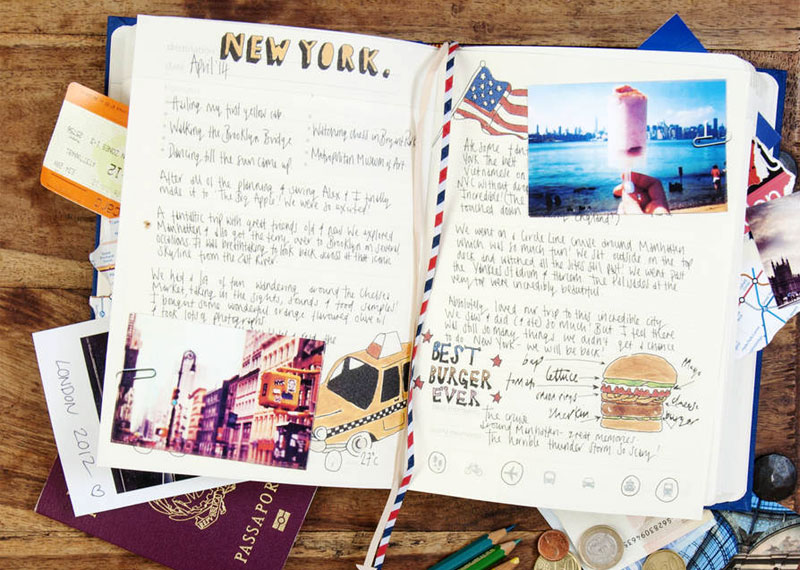 NEW YORK.
April '14
Hailing my first yellow cab
Walking the Brooklyn Bridge
Dancing till the sun came up
Watching chess in Bryant Park
Metropolitan Museum of Art
After all of the planning & saving, Alex & I finally
made it to 'The Big Apple'! We were so excited!
A fantastic trip with great friends old & new. We explored
Manhattan & also got the ferry over to Brooklyn on several
occasions. It was breathtaking to look back down at that iconic
skyline from the East River.
We had a lot of fun wandering around the Chelsea
Market taking in the sights, sounds & food samples!
I bought some wonderful orange flavoured olive oil
& took lots of photographs
27°C
At some
York. The best
Vietnamese
NYC without
Incredible! (The
touched down
England!)
We went on a Circle Line cruise around Manhattan
which was so much fun! We sat outside on the top
deck and watched all the sites sail past. We went past
the Yankees Stadium & Harlem. The Palisades at the
very top were incredibly beautiful.
Absolutely loved our trip to this incredible city.
We saw & did (& ate) so much! But I feel there
was still so many things we didn't get a chance
to do. New York - we will be back!
BEST
BURGER
EVER
lettuce
onion rings
gherkin
Mayo
cheese
burger
The cruise
around Manhattan - great memories.
The horrible thunder storm. So scary!
LONDON 2012
PASSAPORT